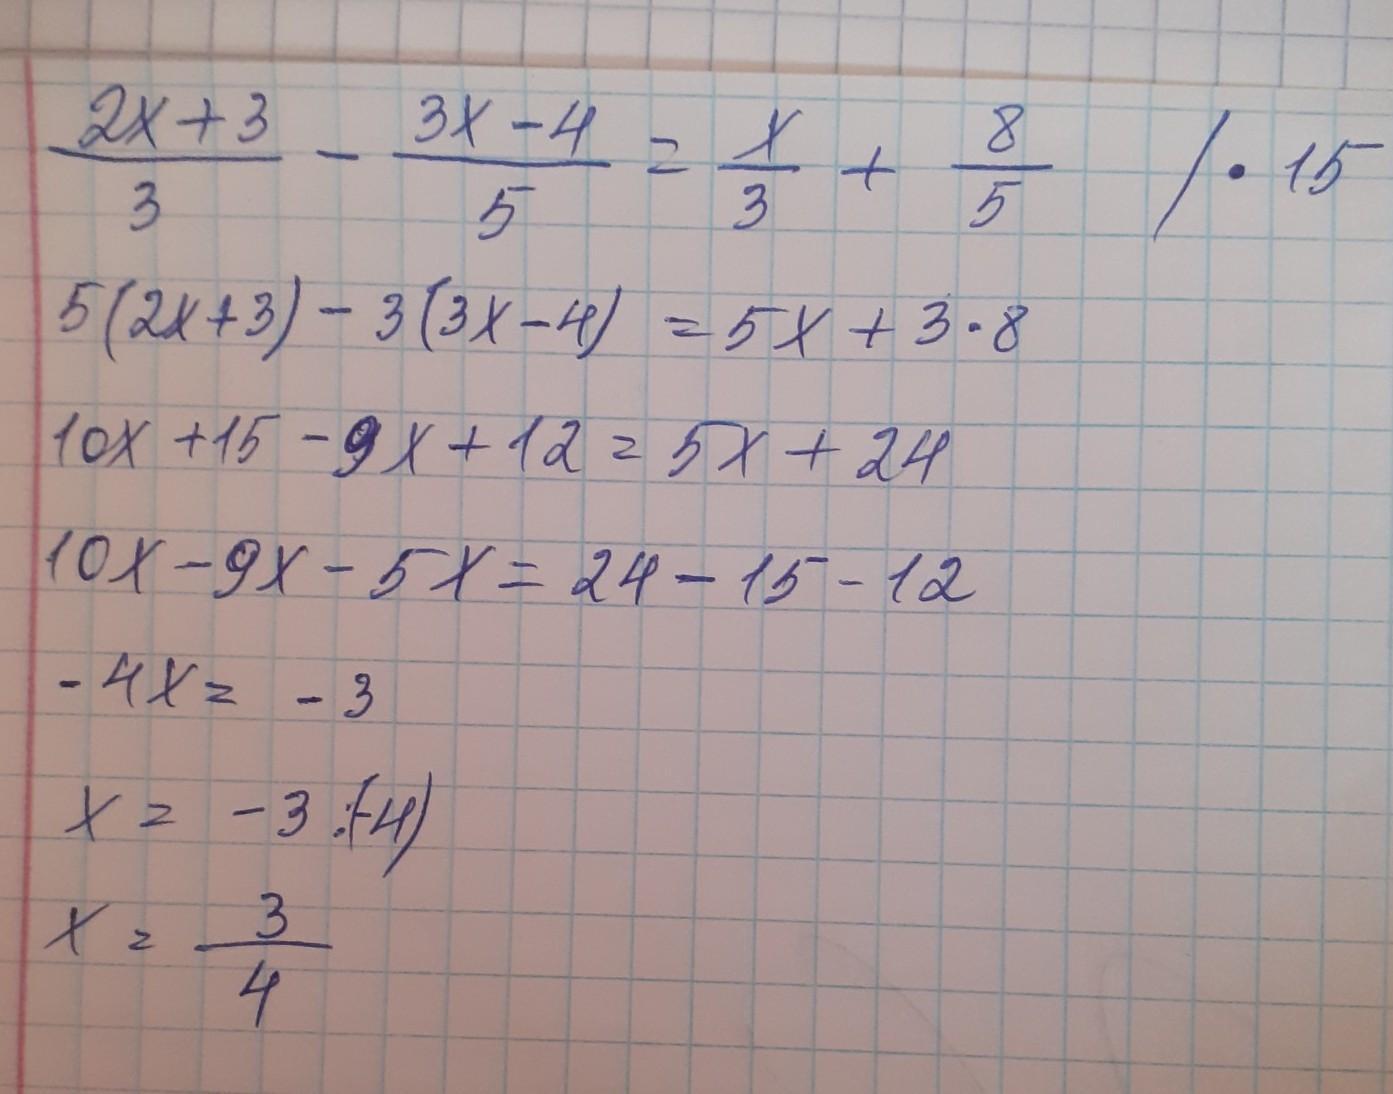 (2x+3)/3 - (3x-4)/5 = x/3 + 8/5 /·15
5(2x+3) - 3(3x-4) = 5x + 3·8
10x +15 -9x +12 = 5x + 24
10x - 9x - 5x = 24 - 15 - 12
-4x = -3
x = -3 :(-4)
x = 3/4